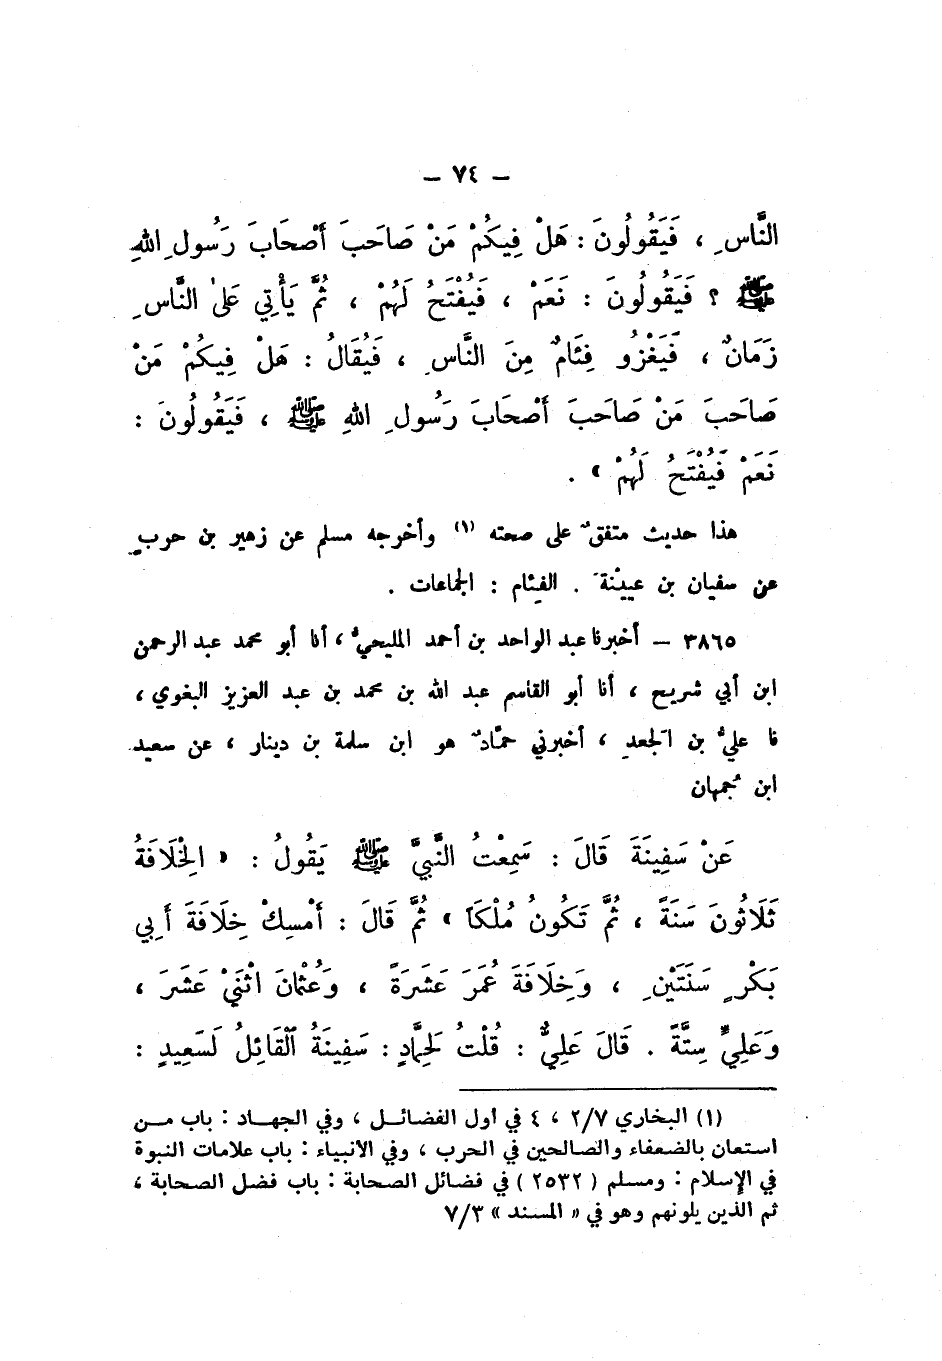 – ٧٤ –
النَّاسِ ، فَيَقُولُونَ : هَلْ فِيكُمْ مَنْ صَاحَبَ أَصْحَابَ رَسُولِ اللهِ
ﷺ ؟ فَيَقُولُونَ : نَعَمْ ، فَيُفْتَحُ لَهُمْ ، ثُمَّ يَأْتِي عَلىٰ النَّاسِ
زَمَانٌ ، فَيَغْزُو فِئَامٌ مِنَ النَّاسِ ، فَيُقَالُ : هَلْ فِيكُمْ مَنْ
صَاحَبَ مَنْ صَاحَبَ أَصْحَابَ رَسُولِ اللهِ ﷺ ، فَيَقُولُونَ :
نَعَمْ فَيُفْتَحُ لَهُمْ » .
هذا حديث متفقٌ على صحته (١) وأخرجه مسلم عن زهير بن حربٍ
عن سفيان بن عيينْةَ . الفِئام : الجماعات .
٣٨٦٥ – أخبرنا عبد الواحد بن أحمد المليحيُّ ، أنا أبو محمد عبد الرحمن
ابن أبي شريح ، أنا أبو القاسم عبد الله بن محمد بن عبد العزيز البغوي ،
نا عليُّ بن الجَعدِ ، أخبرني حمّادٌ هو ابن سلمة بن دينار ، عن سعيد
ابن جُمهان
عَنْ سَفِينَةَ قَالَ : سَمِعْتُ النَّبِيَّ ﷺ يَقُولُ : « الخِلَافَةُ
ثَلَاثُونَ سَنَةً ، ثُمَّ تَكُونُ مُلْكَاً » ثُمَّ قَالَ : أَمْسِكْ خِلَافَةَ أَبِي
بَكْرٍ سَنَتَيْنِ ، وَخِلَافَةَ عُمَرَ عَشَرَةً ، وَعُثْمَانَ اثْنَيْ عَشَرَ ،
وَعَلِيٍّ سِتَّةً . قَالَ عَلِيٌّ : قُلْتُ لَحِمَّادٍ : سَفِينَةُ ٱلْقَائِلُ لَسَعِيدٍ :
(١) البخاري ٢/٧ ، ٤ في أول الفضائل ، وفي الجهاد : باب من
استعان بالضعفاء والصالحين في الحرب ، وفي الانبياء : باب علامات النبوة
في الإسلام : ومسلم ( ٢٥٣٢ ) في فضائل الصحابة : باب فضل الصحابة ،
ثم الذين يلونهم وهو في « المسند » ٧/٣